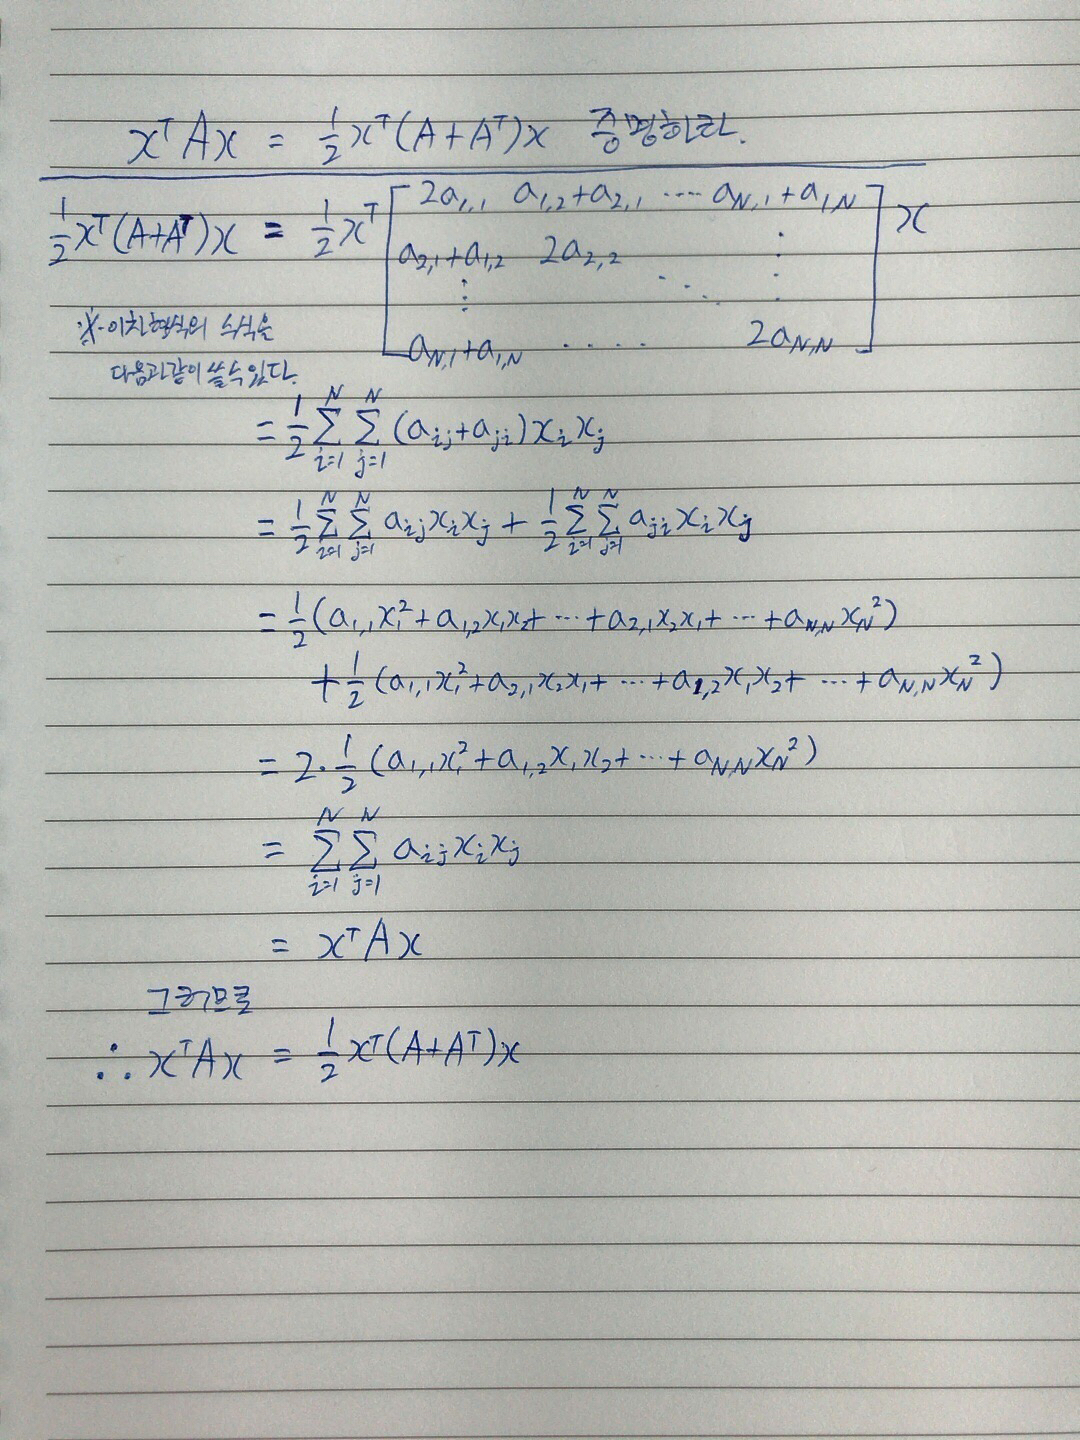 xᵀAx = ½xᵀ(A+Aᵀ)x 증명하라.
½xᵀ(A+Aᵀ)x = ½xᵀ [ 2a₁,₁ a₁,₂+a₂,₁ ···· a_N,₁+a₁,N ] x
a₂,₁+a₁,₂ 2a₂,₂ ⋱ ⋮
⋮
a_N,₁+a₁,N ···· 2a_N,N
※이차형식의 수식은
다음과같이 쓸수있다.
= ½ Σ_{i=1}^{N} Σ_{j=1}^{N} (a_ij+a_ji)x_i x_j
= ½ Σ_{i=1}^{N} Σ_{j=1}^{N} a_ij x_i x_j + ½ Σ_{i=1}^{N} Σ_{j=1}^{N} a_ji x_i x_j
= ½(a₁,₁x₁²+a₁,₂x₁x₂+ ··· +a₂,₁x₂x₁+ ··· +a_N,N x_N²)
+½(a₁,₁x₁²+a₂,₁x₂x₁+ ··· +a₁,₂x₁x₂+ ··· +a_N,N x_N²)
= 2·½(a₁,₁x₁²+a₁,₂x₁x₂+ ··· +a_N,N x_N²)
= Σ_{i=1}^{N} Σ_{j=1}^{N} a_ij x_i x_j
= xᵀAx
그러므로
∴ xᵀAx = ½xᵀ(A+Aᵀ)x